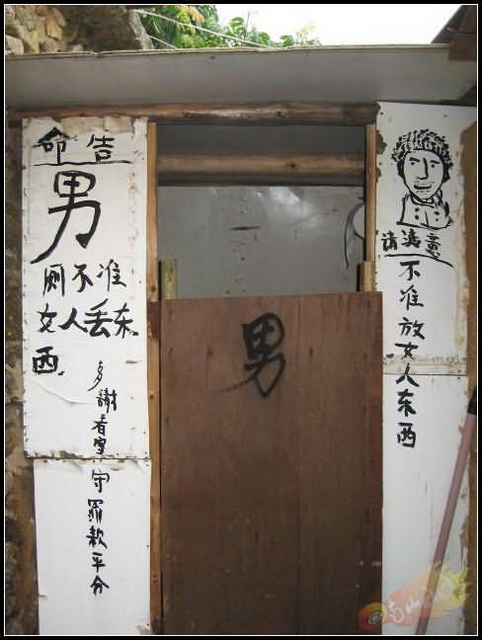 命告
男
厕不准
女人丢东
西.
多謝看室守罪款平分
男
请注意
不准放女人东西